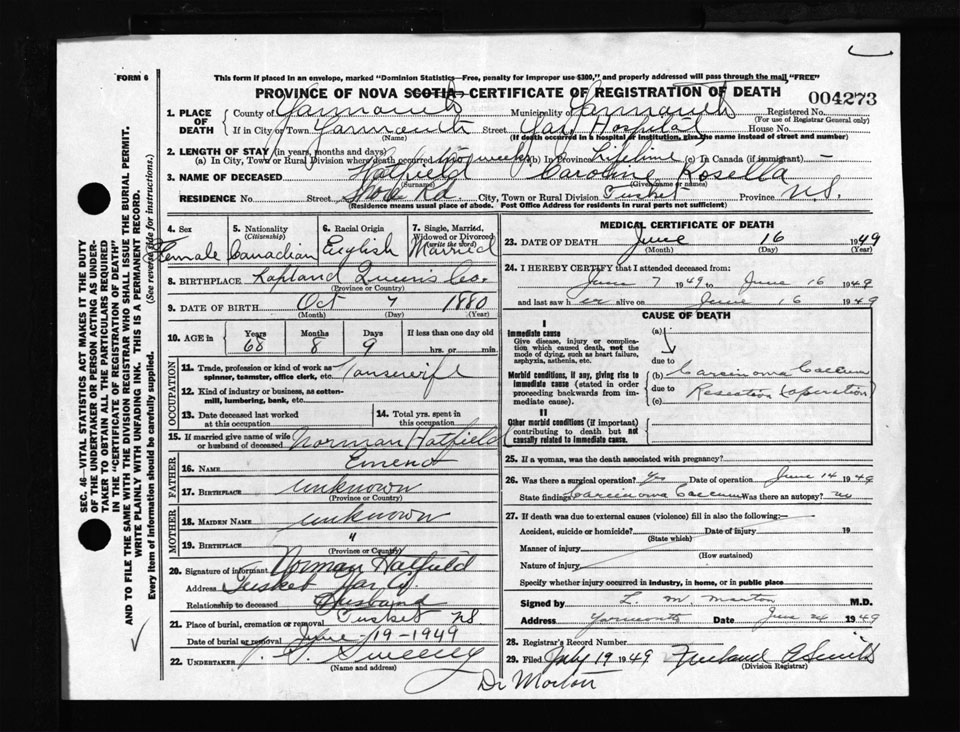 FORM 6
This form if placed in an envelope, marked "Dominion Statistics—Free, penalty for improper use $300," and properly addressed will pass through the mail "FREE"
PROVINCE OF NOVA SCOTIA—CERTIFICATE OF REGISTRATION OF DEATH
004273
1. PLACE OF DEATH
County of Yarmouth Municipality of Yarmouth Registered No.
(For use of Registrar General only)
If in City or Town Yarmouth Street Yar Hospital House No.
(Name) (If death occurred in hospital or institution, give the name instead of street and number)
2. LENGTH OF STAY (in years, months and days)
(a) In City, Town or Rural Division where death occurred two weeks (b) In Province Lifetime (c) In Canada (if immigrant)
3. NAME OF DECEASED Hatfield Caroline Rosella
(Surname) (Given name or names)
RESIDENCE No. Street Rd. City, Town or Rural Division Tusket Province N.S.
(Residence means usual place of abode. Post Office Address for residents in rural parts not sufficient)
4. Sex Female
5. Nationality (Citizenship) Canadian
6. Racial Origin English
7. Single, Married, Widowed or Divorced (write the word) Married
8. BIRTHPLACE Lapland Queens Co.
(Province or Country)
9. DATE OF BIRTH Oct 7 1880
(Month) (Day) (Year)
10. AGE in Years 68 Months 8 Days 9 If less than one day old hrs. or min.
OCCUPATION
11. Trade, profession or kind of work as spinner, teamster, office clerk, etc. Housewife
12. Kind of industry or business, as cotton-mill, lumbering, bank, etc.
13. Date deceased last worked at this occupation
14. Total yrs. spent in this occupation
15. If married give name of wife or husband of deceased Norman Hatfield
FATHER
16. NAME
17. BIRTHPLACE unknown
(Province or Country)
MOTHER
18. MAIDEN NAME unknown
19. BIRTHPLACE "
(Province or Country)
20. Signature of informant Norman Hatfield
Address Tusket Yar Co
Relationship to deceased Husband
21. Place of burial, cremation or removal Tusket N.S.
Date of burial or removal June 19-1949
22. UNDERTAKER Sweeney
(Name and address)
MEDICAL CERTIFICATE OF DEATH
23. DATE OF DEATH June 16 1949
(Month) (Day)
24. I HEREBY CERTIFY that I attended deceased from:
June 7 1949 to June 16 1949
and last saw her alive on June 16 1949
CAUSE OF DEATH
I
Immediate cause
Give disease, injury or complication which caused death, not the mode of dying, such as heart failure, asphyxia, asthenia, etc.
Morbid conditions, if any, giving rise to immediate cause (stated in order proceeding backwards from immediate cause).
II
Other morbid conditions (if important) contributing to death but not causally related to immediate cause.
(a)
due to
(b) Carcinoma Caecum
due to Resection operation
(c)
25. If a woman, was the death associated with pregnancy?
26. Was there a surgical operation? Yes Date of operation June 14 1949
State findings Carcinoma Caecum Was there an autopsy? no
27. If death was due to external causes (violence) fill in also the following:—
Accident, suicide or homicide? Date of injury 19
(State which)
Manner of injury
(How sustained)
Nature of injury
Specify whether injury occurred in industry, in home, or in public place
Signed by L. M. Morton M.D.
Address Yarmouth Date June 24 1949
28. Registrar's Record Number
29. Filed July 19 1949 A Smith
(Division Registrar)
Dr Morton
SEC. 46—VITAL STATISTICS ACT MAKES IT THE DUTY
OF THE UNDERTAKER OR PERSON ACTING AS UNDER-
TAKER TO OBTAIN ALL THE PARTICULARS REQUIRED
IN THE "CERTIFICATE OF REGISTRATION OF DEATH"
AND TO FILE THE SAME WITH THE DIVISION REGISTRAR WHO SHALL ISSUE THE BURIAL PERMIT.
WRITE PLAINLY WITH UNFADING INK. THIS IS A PERMANENT RECORD.
Every item of information should be carefully supplied. (See reverse side for instructions.)